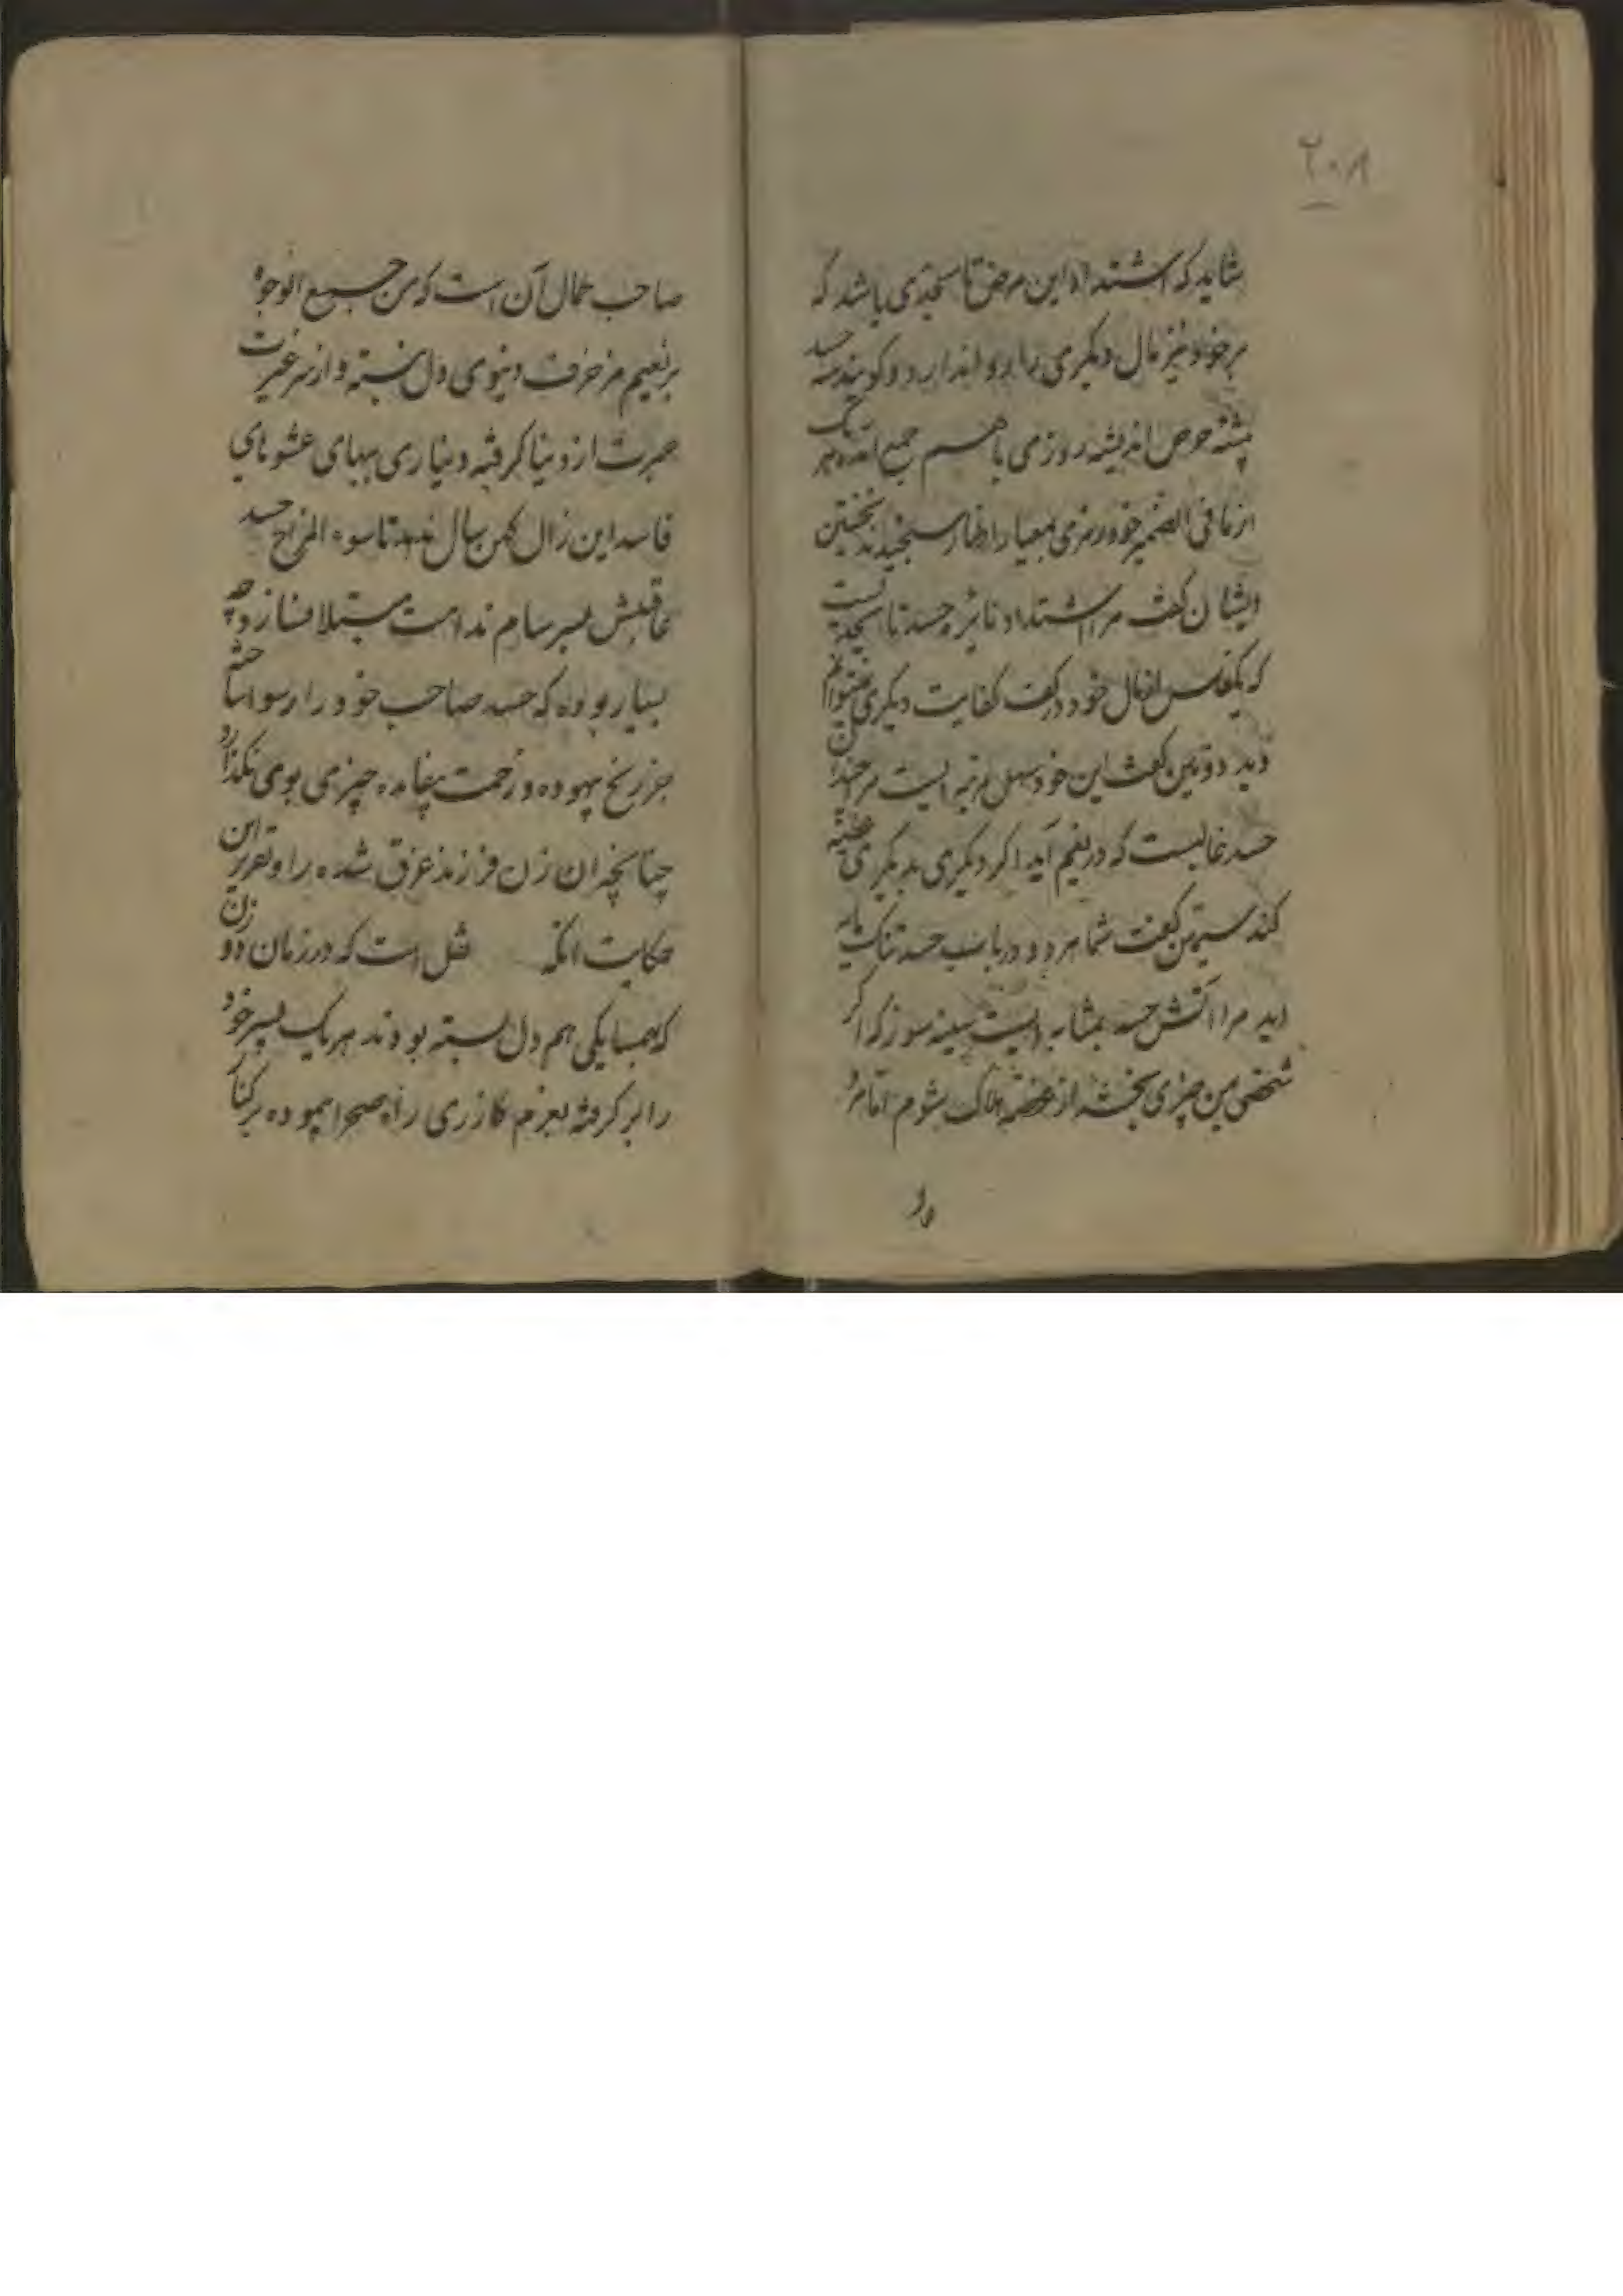 ۲۰۸
شاید که اشتداد این مرض تا بحدی باشد که
بر خود نیز مال دیگری را روا ندارد و گویند سه حسد
پیشه حرص اندیشه روزی با هم جمع آمده هر یک
از ما فی الضمیر خود رمزی بمعیار اظهار سنجیدند نخستین
ایشان گفت مرا اشتداد نائره حسد تا بحدیست
که یکفلس از مال خود در کف کفایت دیگری نمیتوانم
دید دومین گفت این خود سهل مرتبه ایست مرا چندان
حسد غالبست که دریغم آید اگر دیگری بدیگری عطیه
کند سیمین گفت شما هر دو در باب حسد تنک مایه
اید مرا آتش حسد بمثابه ایست سینه سوز که اگر
شخصی بمن چیزی بخشد از غصه هلاک شوم اما مرد
صاحب کمال آن است که من جمیع الوجوه
بر نعیم مزخرف دنیوی دل نبسته و از سر غیرت
عبرت از دنیا گرفته دیناری ببهای عشوهای
فاسد این زال کهن سال ندهد تا سوء المزاج حسد
عاقبتش بسرسام ندامت مبتلا نسازد چه
بسیار بوده که حسد صاحب خود را رسوا ساخته
جز رنج بیهوده و زحمت بیفایده چیزی بوی نگذارد
چنانچه ان زن فرزند غرق شده را و تقریر این
حکایت انکه نقل است که در زمان دو زن
که بهمسایگی هم دل بسته بودند هر یک پسر خود
را بر گرفته بعزم گازری راه صحرا پیموده بر کنار